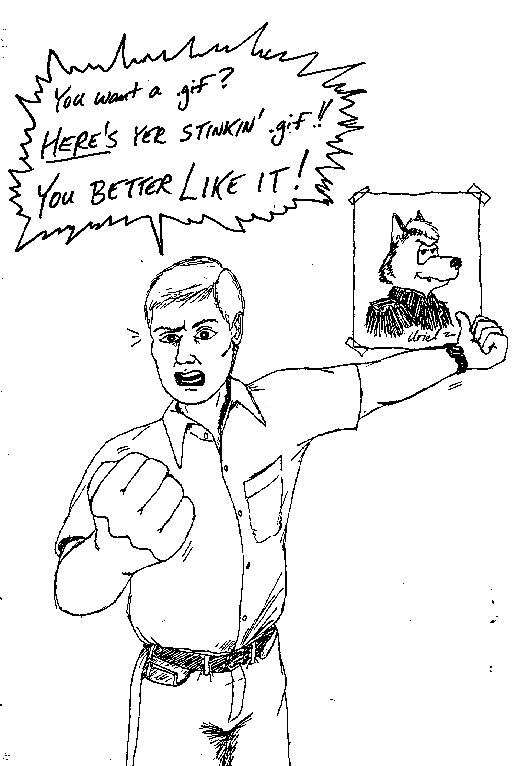 You want a .gif?
HERE'S YER STINKIN' .gif!!
YOU BETTER LIKE IT!